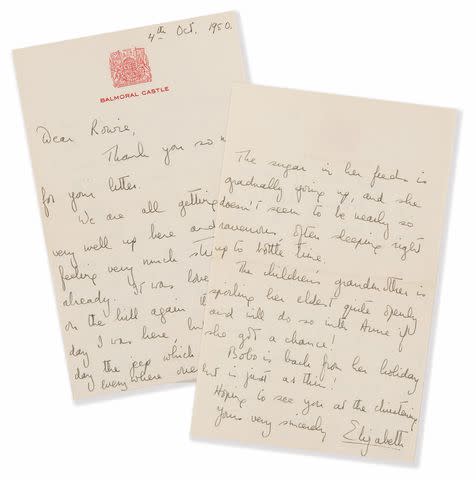 4th Oct. 1950.
BALMORAL CASTLE
Dear Rowie,
Thank you so
for your letter.
We are all getting
very well up here and
feeling very much
already. It was
on the hill again
day I was here,
day the jeep which
everywhere
The sugar in her feeds is
gradually going up, and she
doesn't seem to be nearly so
ravenous, often sleeping right
up to bottle time.
The children's grandmother is
spoiling her eldest quite openly
and will do so with Anne if
she got a chance!
Bobo is back from her holiday
but is just as thin!
Hoping to see you at the christening
Yours very sincerely
Elizabeth